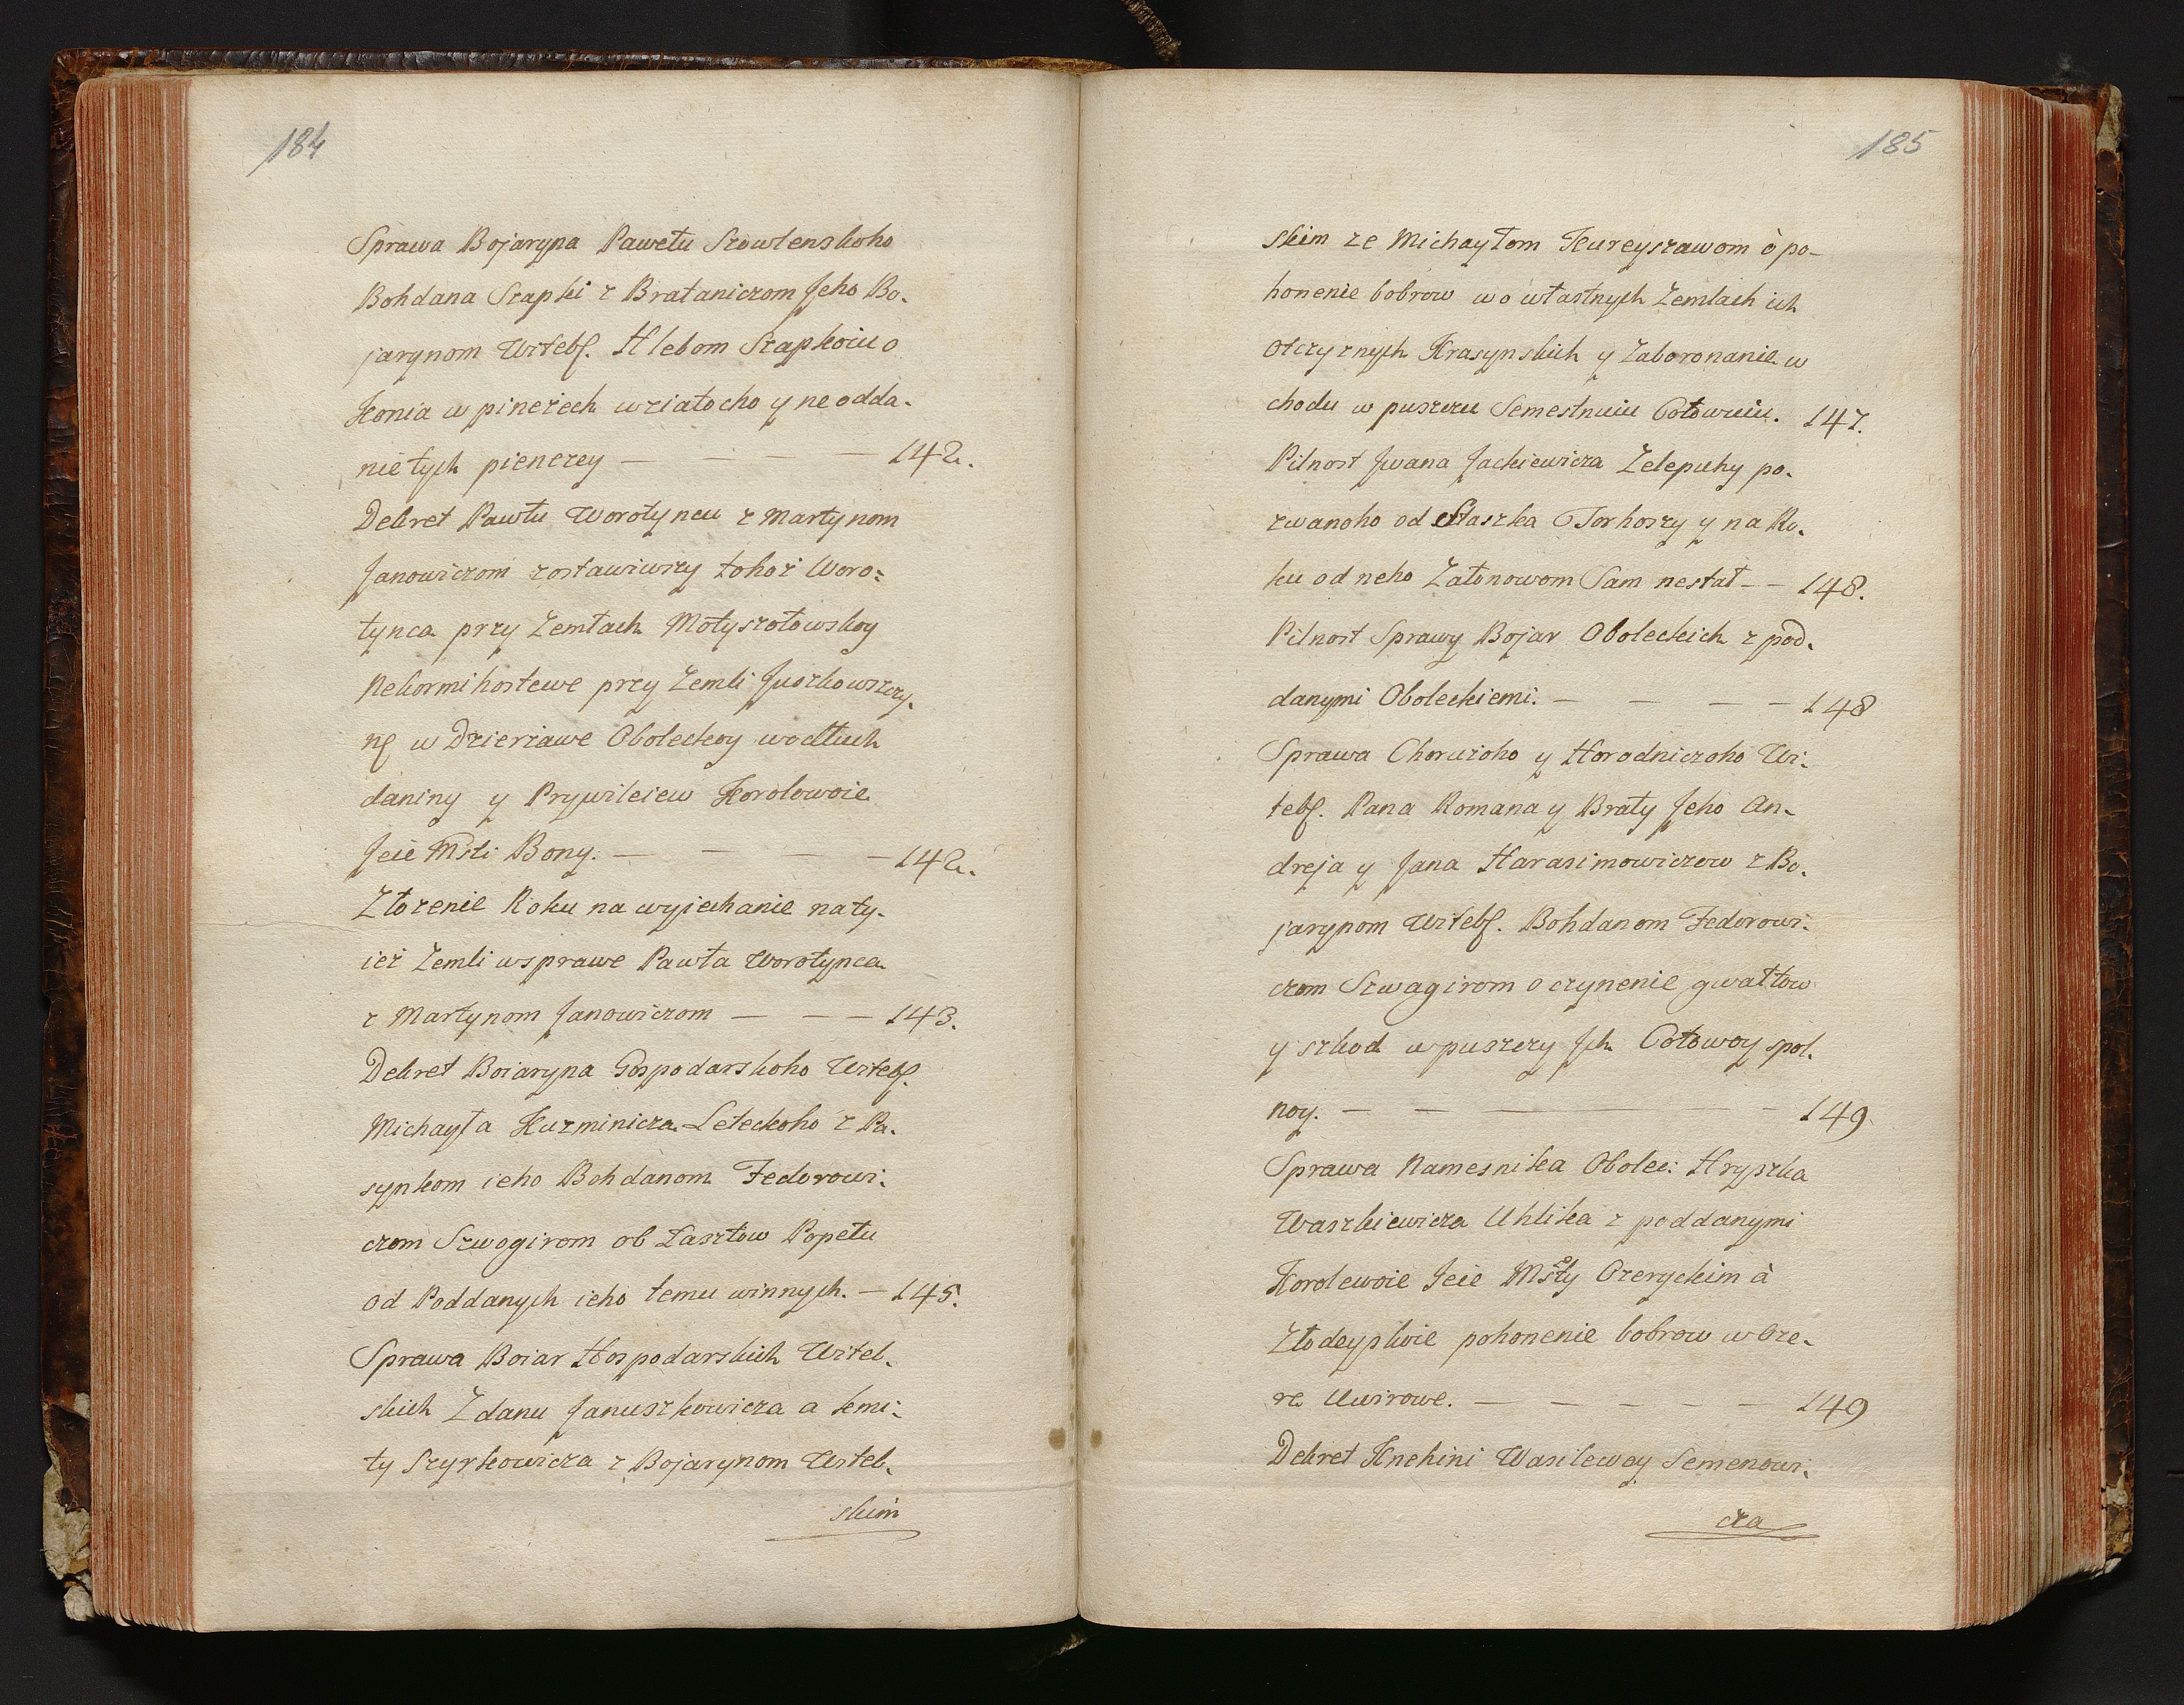 184
Sprawa Bojaryna Pawełu Szowlenskoho
Bohdana Szapki z Brataniczom Jeho Bo-
jarynom Witebs. Hlebom Szapkoiu o
Konia w pineżech wziatocho y ne odda-
nie tych pienezey — — — — 142.
Dekret Pawłu Worotyncu z Martynom
Janowiczom zostawiwszy tohoż Woro-
tynca przy Zemłach Motyszołowskoy
Nekormihostewe przy Zemli Juszkowszczy-
nę w Dzierżawe Oboleckoy wodłuch
daniny y Prywileiew Korolowoie
Jeie Mśti Bony. — — — — 142.
Złożenie Roku na wyjechanie na ty-
ież Zemli w sprawe Pawła Worotynca
z Martynom Janowiczom — — — 143.
Dekret Boiaryna Gospodarskoho Witebs.
Michayła Kuzminicza Leteckoho z Pa-
synkom ieho Bohdanom Fedorowi-
czom Szwogirom ob Łasztow Popełu
od Poddanych ieho temu winnych. — 145.
Sprawa Boiar Hospodarskich Witeb-
skich Zdanu Januszkowicza a Semi-
ty Szyrkowicza z Bojarynom Witeb-
skim
185
skim ze Michayłom Kureyszawom ò po-
honenie bobrow wo własnych Zemlach ich
Otczyznych Krasynskich y Zaboronanie w
chodu w puszczu Semestnuiu Cotowuiu. 147.
Pilnost Jwana Jackiewicza Zelepuhy po-
zwanoho od Staszka Torhoszy y na Ro-
ku od neho Założowom Sam nestał — — 148.
Pilnost Sprawy Bojar Oboleckich z pod-
danymi Oboleckiemi. — — — — 148
Sprawa Choružoho y Horodniczoho Wi-
tebs. Pana Romana y Braty Jeho An-
dreja y Jana Harasimowiczow z Bo-
jarynom Witebs. Bohdanom Fedorowi-
czom Szwagirom o czynenie gwałtow
y szkod w puszczy Jch Cotowoy spol-
noy. — — — — — 149
Sprawa Namesnika Obolec: Hryszka
Waszkiewicza Uhlika z poddanymi
Korolewoie Jeie Msty Ozeryckim à
Złodeyskoie pohonenie bobrow w Oze-
re Uwirowe. — — — — — 149
Dekret Knehini Wasilewoy Semenowi-
cza